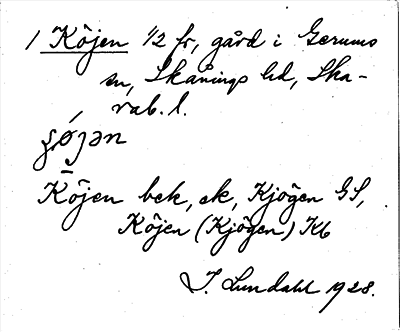 1 Köjen 1/2 fr, gård i Gerums
sn, Skånings hd, Ska-
rab. l.
ʂö́jən
Köjen bek, ek, Kjögen GS,
Köjen (Kjögen) Kb
I. Lundahl 1928.